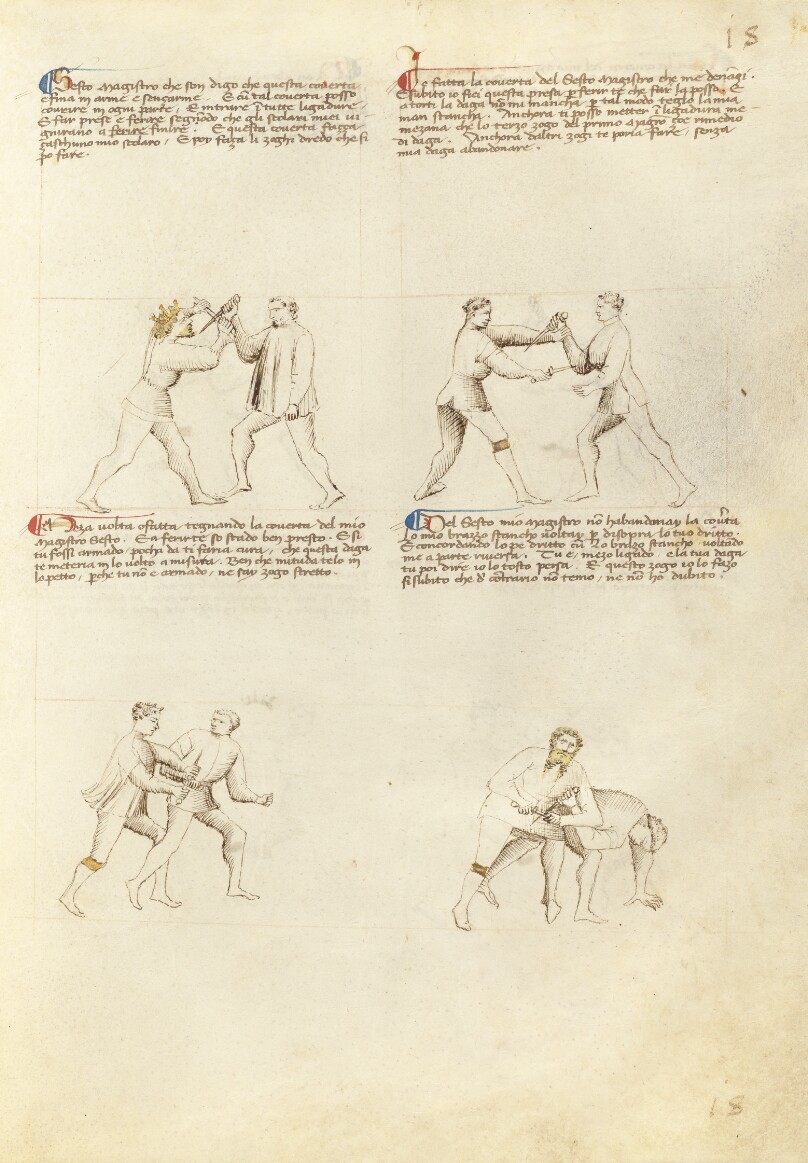 18
Sesto Magistro che son digo che questa coverta
e fina in arme e sença arme. E cum tal coverta posso
covrire in ogni parte, E intrare in tutte ligadure,
E far prese e ferire segondo che gli scolari miei vi
gnirano a ferire finire. E questa coverta façça
çaschuno mio scolaro, E poy faça li zoghi dredo che si
pò fare.
Io fatta la coverta del Sesto Magistro che me denançi.
E subito io fici questa presa per ferir te che far la posso. E
a torti la daga non mi mancha, per tal modo tegno la mia
man stancha. Anchora ti posso metter in ligadura me-
mezana che lo terzo zogo del primo Magistro çoe rimedio
di daga. Anchora d'altri zogi te poria fare, senza
mia daga abandonare.
Meza volta o fatta, tegnando la coverta del mio
Magistro Sesto. E a ferirte so stado ben presto. E si
tu fossi armado, pocha da ti faria cura, che questa daga
te meteria in lo volto a misura. Ben che mituda telo in
lo petto, perche tu non e armado, ne say zogo stretto.
Del Sesto mio Magistro non habandonay la coverta
Lo mio brazzo stancho voltay per disopra lo tuo dritto.
E concordando lo pe dritto cum lo brazo stancho voltado
me a parte riversa. Tu e, mezo ligado, e la tua daga
tu poi dire io lo tosto persa. E questo zogo io lo fazo
si subito che del contrario non temo, ne non ho dubito.
18